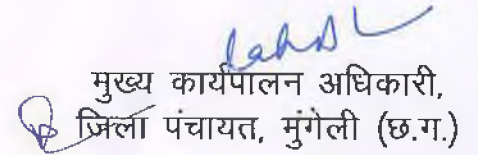 मुख्य कार्यपालन अधिकारी,
जिला पंचायत, मुंगेली (छ.ग.)